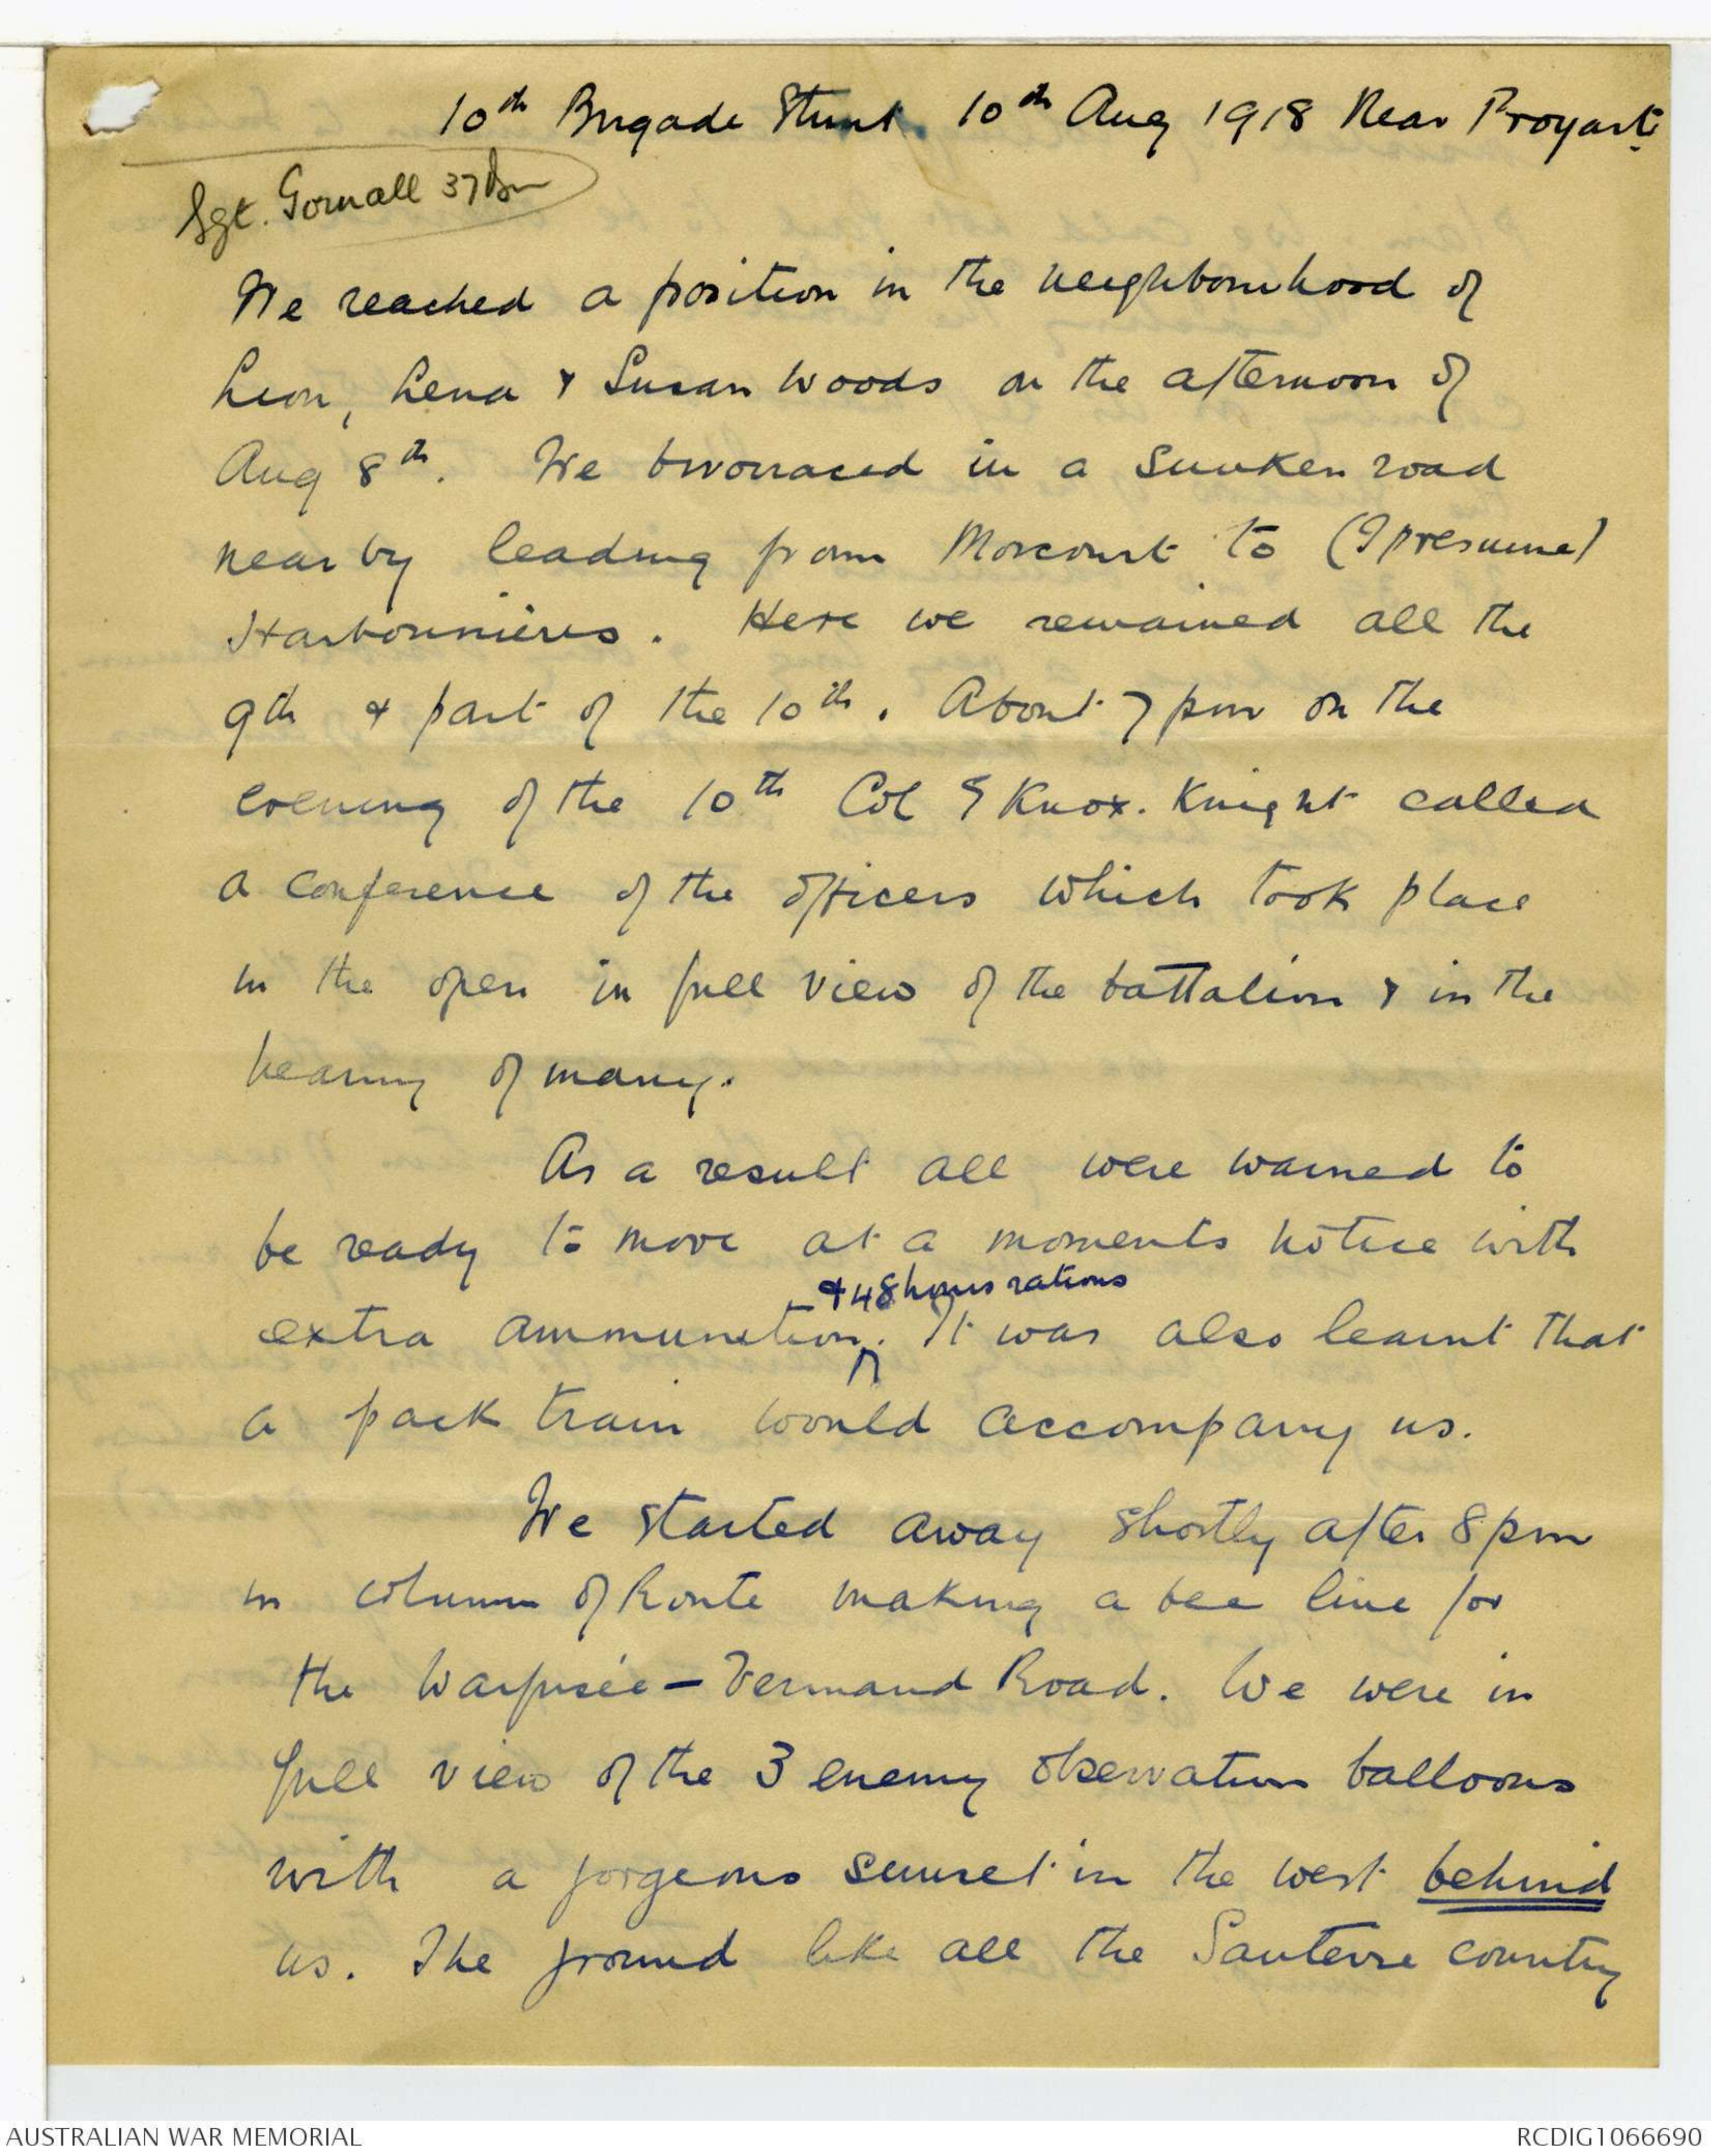 10th Brigade Stunt. 10th Aug 1918 Near Proyart.
Sgt. Gornall 37 Bn
We reached a position in the neighbourhood of
Leon, Lena & Susan Woods on the afternoon of
Aug 8th. We bivouaced in a sunken road
near by leading from Morcourt to (I presume)
Harbonnières. Here we remained all the
9th & part of the 10th. About 7 pm on the
evening of the 10th Col E Knox. Knight called
a conference of the officers which took place
in the open in full view of the battalion & in the
hearing of many.
As a result all were warned to
be ready to move at a moments notice with
& 48 hours rations
extra ammunition. It was also learnt that
a pack train would accompany us.
We started away shortly after 8 pm
in column of Route making a bee line for
the Warfusée - Vermand Road. We were in
full view of the 3 enemy observation balloons
with a gorgeous sunset in the west behind
us. The ground like all the Santerre country
AUSTRALIAN WAR MEMORIAL
RCDIG1066690